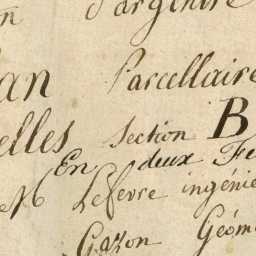 d'argent
an Parcellaire
elles Section B
En deux Fe
M Lefevre ingénie
Gazon Géom